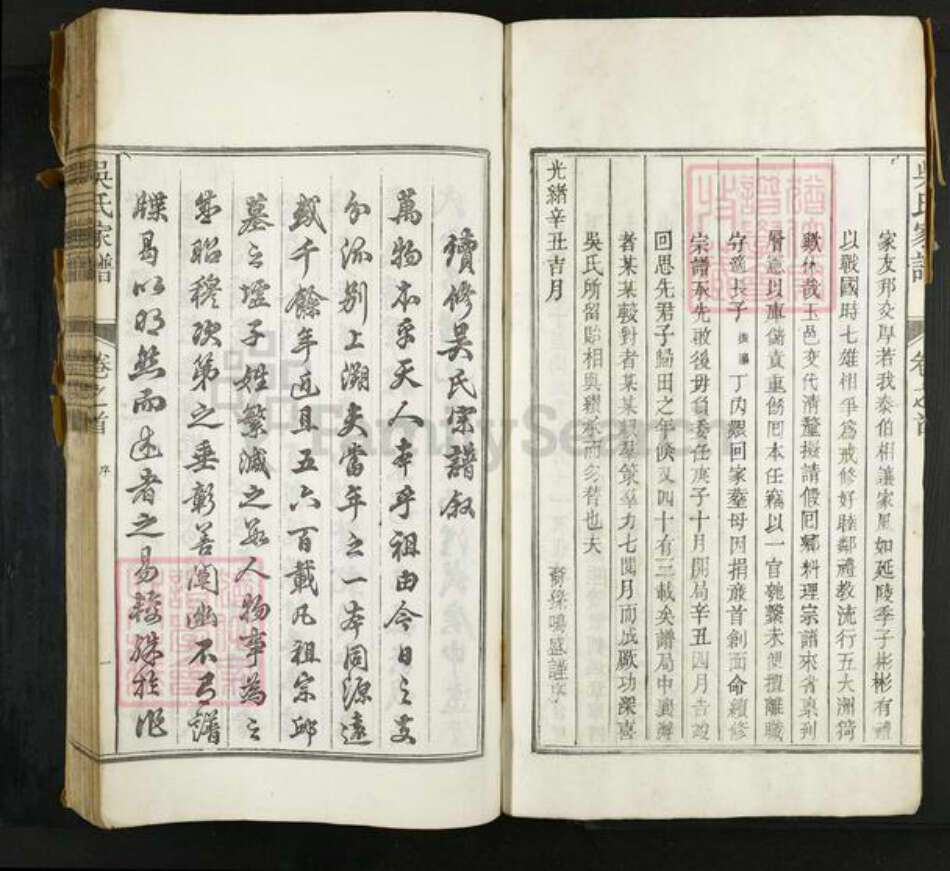 家友邦交厚若我泰伯相讓家風如延陵季子彬彬有禮
以戰國時七雄相爭為戒修好睦鄰禮教流行五大洲猗
歟休哉玉邑交代清釐擬請假回鄉料理宗譜來省稟到
層憲以庫儲責重飭回本任竊以一官匏繫未便擅離職
守適長子丁內艱回家塟母因捐廉首創面命續修
宗譜承先啟後毋負委任庚子十月開局辛丑四月告竣
回思先君子歸田之年倏又四十有三載矣譜局中與辦
者某某較對者某某羣策羣力七閱月而成厥功深喜
吳氏所留貽相與續承而勿替也夫
光緒辛丑吉月
裔孫鳴盛謹序
吳氏家譜
卷之首
續修吳氏宗譜叙
萬物本乎天人本乎祖由今日之支
分派別上溯夫當年之一本同源遠
或千餘年近且五六百載凡祖宗邱
墓之墟子姓繁滅之數人物事為之
昭穆次第之垂彰善闡幽不有譜
牒曷以明然而述者之易較殊於作
吳氏家譜
卷之首
序
一
FamilySearch